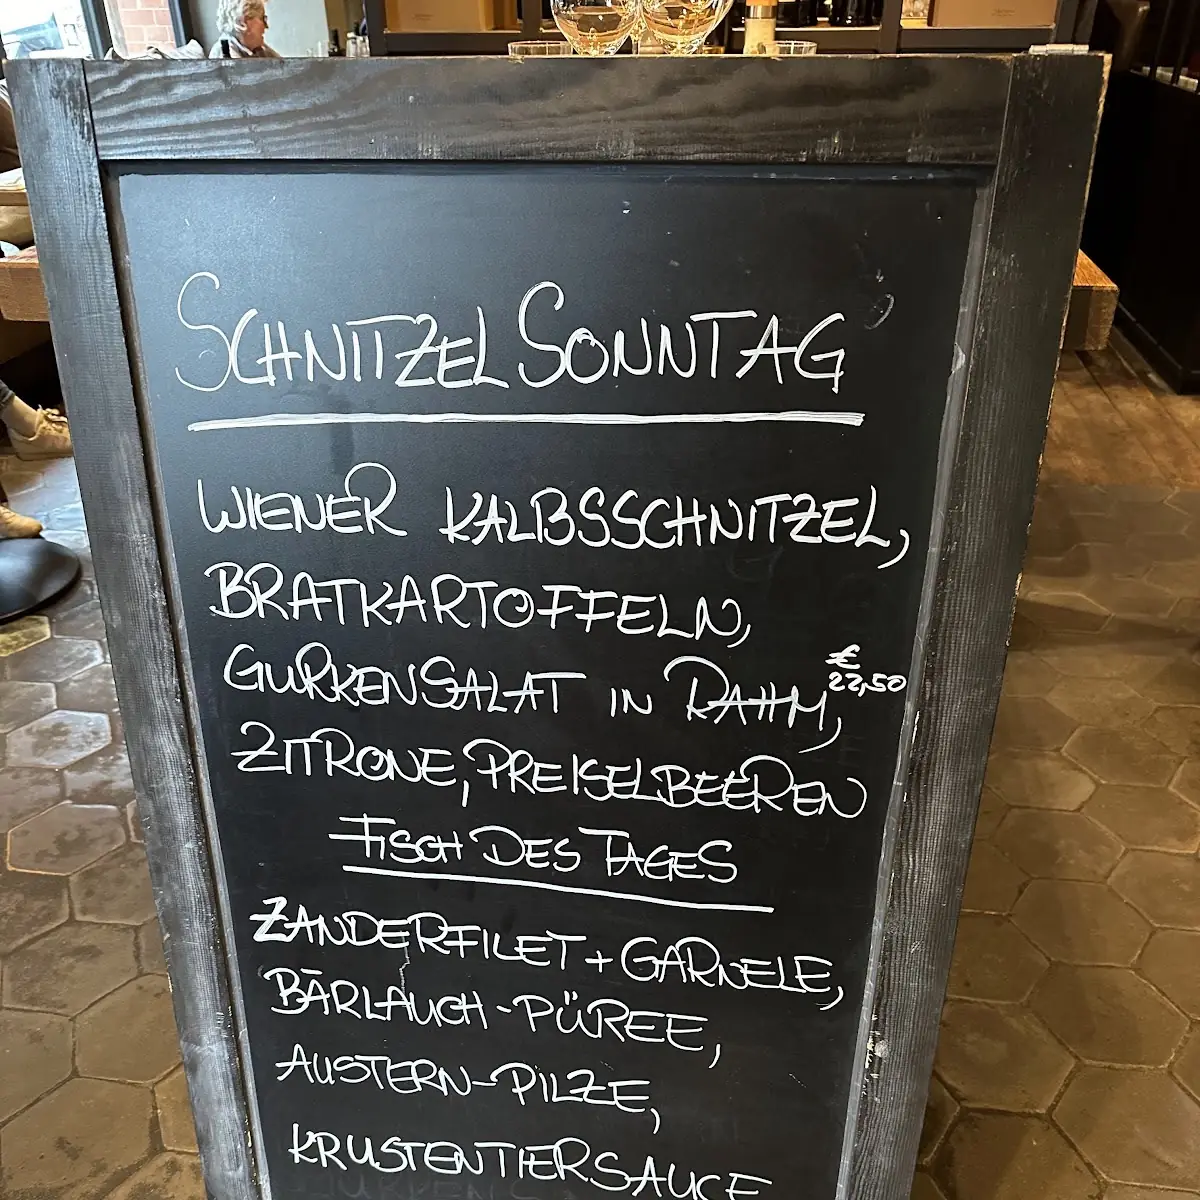 SCHNITZEL SONNTAG
WIENER KALBSSCHNITZEL,
BRATKARTOFFELN,
GURKENSALAT IN RAHM,
€
22,50
ZITRONE, PREISELBEEREN
FISCH DES TAGES
ZANDERFILET + GARNELE,
BÄRLAUCH-PÜREE,
AUSTERN-PILZE,
KRUSTENTIERSAUCE